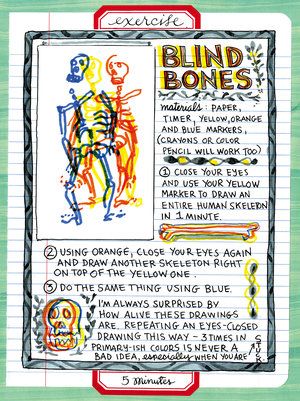 exercise
BLIND
BONES
materials: PAPER,
TIMER, YELLOW, ORANGE
AND BLUE MARKERS,
(CRAYONS OR COLOR
PENCIL WILL WORK TOO)
① CLOSE YOUR EYES
AND USE YOUR YELLOW
MARKER TO DRAW AN
ENTIRE HUMAN SKELETON
IN 1 MINUTE.
② USING ORANGE, CLOSE YOUR EYES AGAIN
AND DRAW ANOTHER SKELETON RIGHT
ON TOP OF THE YELLOW ONE.
③ DO THE SAME THING USING BLUE.
I'M ALWAYS SURPRISED BY
HOW ALIVE THESE DRAWINGS
ARE. REPEATING AN EYES-CLOSED
DRAWING THIS WAY - 3 TIMES IN
PRIMARY-ISH COLORS IS NEVER A
BAD IDEA, especially WHEN YOU ARE
STUCK
5 minutes